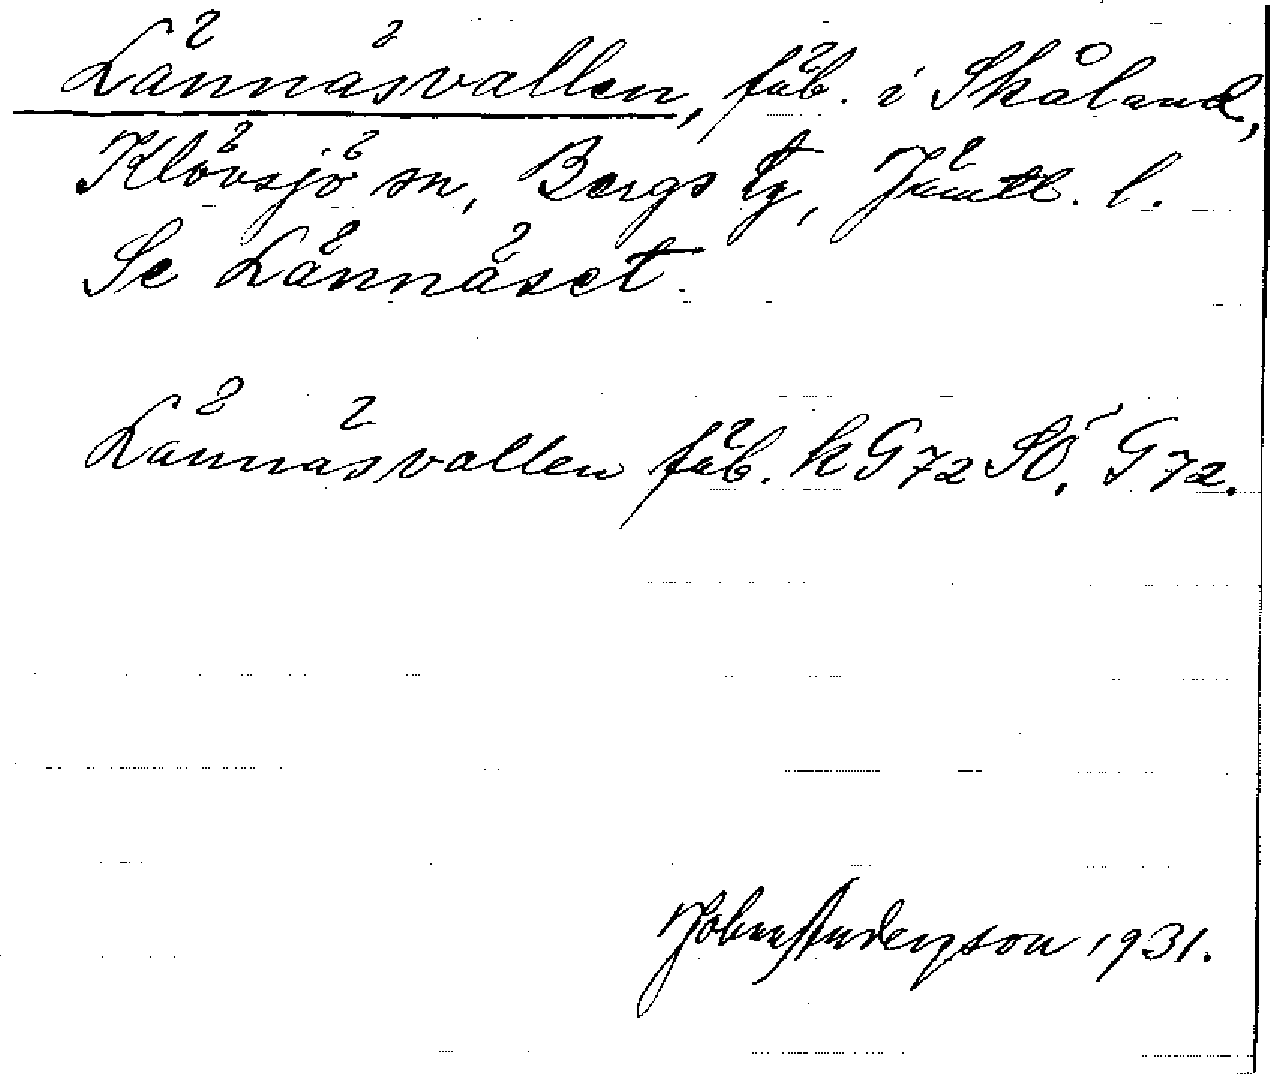 Lännäsvallen, fäb. i Skåland,
Klövsjö sn, Bergs tg, Jämtl. l.
Se Lännäset.
Lännäsvallen fäb. k G72 SO. G72.
John Anderson 1931.